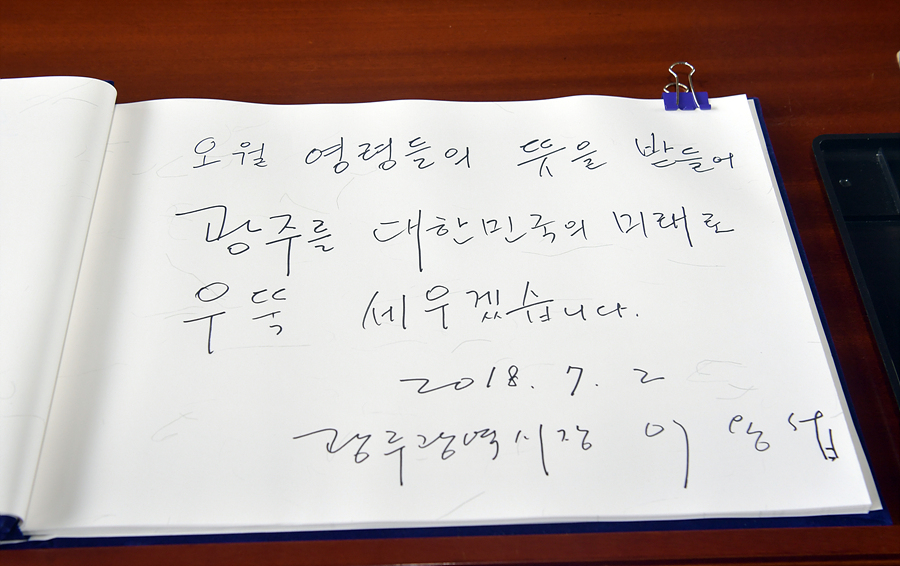 오월 영령들의 뜻을 받들어
광주를 대한민국의 미래로
우뚝 세우겠습니다.
2018. 7. 2
광주광역시장 이용섭